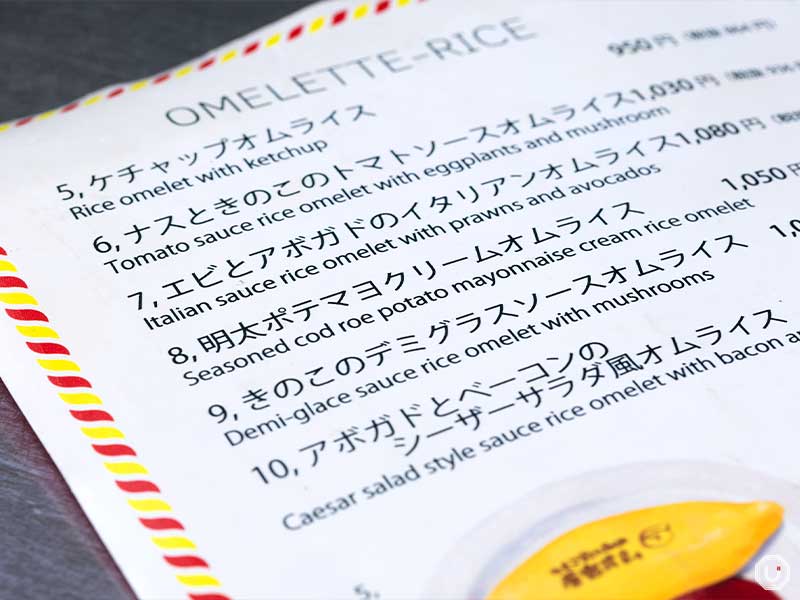 OMELETTE-RICE
5, ケチャップオムライス 950円
Rice omelet with ketchup
6, ナスときのこのトマトソースオムライス 1,030円
Tomato sauce rice omelet with eggplants and mushroom
7, エビとアボガドのイタリアンオムライス 1,080円
Italian sauce rice omelet with prawns and avocados
8, 明太ポテマヨクリームオムライス 1,050円
Seasoned cod roe potato mayonnaise cream rice omelet
9, きのこのデミグラスソースオムライス
Demi-glace sauce rice omelet with mushrooms
10, アボガドとベーコンの
シーザーサラダ風オムライス
Caesar salad style sauce rice omelet with bacon
5,